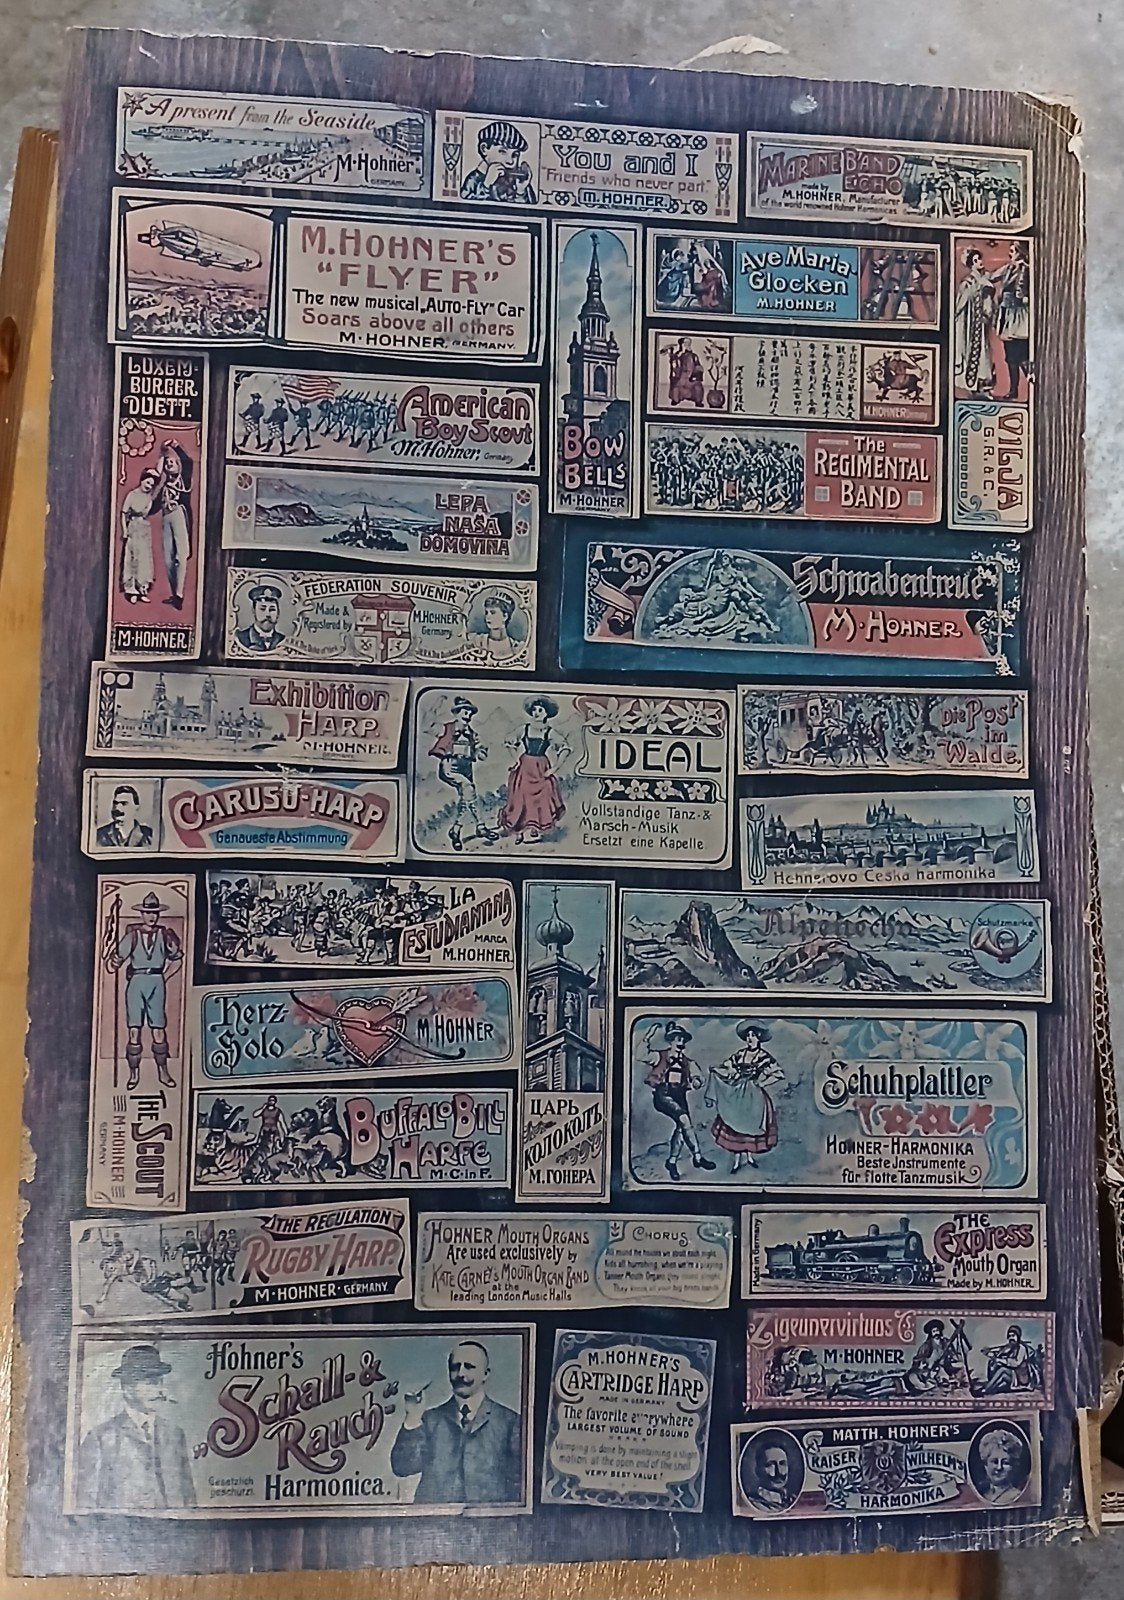 A present from the Seaside
M. Hohner
GERMANY.
You and I
"Friends who never part."
M. HOHNER.
MARINE BAND
ECHO
made by
M. HOHNER, Manufacturer
of the world renowned Hohner Harmonicas.
M. HOHNER'S
"FLYER"
The new musical „AUTO-FLY" Car
Soars above all others
M. HOHNER. GERMANY.
BOW
BELLS
M. HOHNER
GERMANY.
Ave Maria
Glocken
M. HOHNER
M. HOHNER
VILJA
G. R. & C.
LUXEM-
BURGER
DUETT.
M. HOHNER.
American
Boy Scout
M. Hohner. Germany
The
REGIMENTAL
BAND
LEPA
NAŠA
DOMOVINA
FEDERATION SOUVENIR
Made &
Registered by
M. HOHNER
Germany.
Schwabentreue
M. HOHNER
Exhibition
HARP.
M. HOHNER.
IDEAL
Vollstandige Tanz- &
Marsch-Musik
Ersetzt eine Kapelle
Die Post
im
Walde.
CARUSO-HARP
Genaueste Abstimmung
Hohnerovo Česka harmonika
THE SCOUT
M. HOHNER
GERMANY
LA
ESTUDIANTINA
MARCA
M. HOHNER.
Alpenecho
Schutzmarke
Herz-
Solo
M. HOHNER
ЦАРЬ
КОЛОКОЛЪ
М. ГОНЕРА
Schuhplattler
HOHNER-HARMONIKA
Beste Jnstrumente
für flotte Tanzmusik
BUFFALO BILL
HARFE
M. C. in F.
THE REGULATION
RUGBY HARP.
M. HOHNER. GERMANY.
HOHNER MOUTH ORGANS
Are used exclusively by
KATE CARNEY'S MOUTH ORGAN BAND
at the
leading London Music Halls
CHORUS.
Made in Germany
THE
Express
Mouth Organ
Made by M. HOHNER.
Zigeunervirtuos
M. HOHNER
Hohner's
„Schall- &
Rauch"
Gesetzlich
geschützt.
Harmonica.
M. HOHNER'S
CARTRIDGE HARP
MADE IN GERMANY
The favorite everywhere
LARGEST VOLUME OF SOUND
Vamping is done by maintaining a slight
motion at the open end of the shell
VERY BEST VALUE!
MATTH. HOHNER'S
KAISER WILHELM'S
HARMONIKA